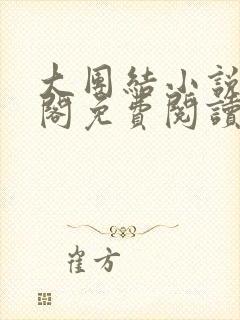 大團結小說
閣免費閱讀
崔方